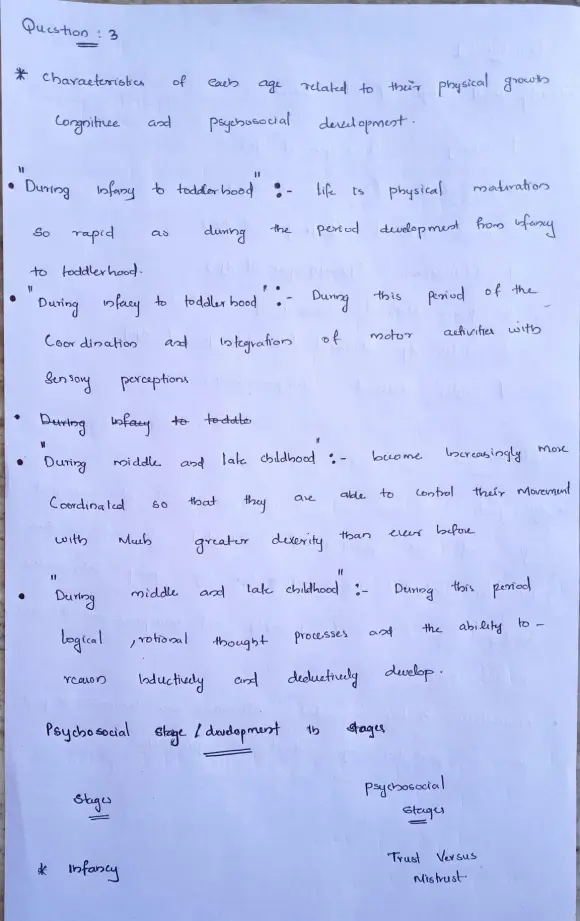 Question : 3
* Characteristics of each age related to their physical growth
Congnitive and psychosocial development.
• "During Infany to toddlerhood" :- life is physical maturation
so rapid as during the period development from infancy
to toddlerhood.
• "During infacy to toddlerhood" :- During this period of the
Coordination and Integration of motor activities with
Sensory perceptions
• During infacy to toddle
• "During middle and late childhood" :- become increasingly more
Coordinated so that they are able to control their Movement
with Much greater dexerity than ever before
• "During middle and late childhood" :- During this period
logical , rotional thought processes and the ability to -
reason Inductively and deductively develop.
Psychosocial stage / development in stages
Stages
Psychosocial
Stages
* Infancy
Trust Versus
Mistrust.